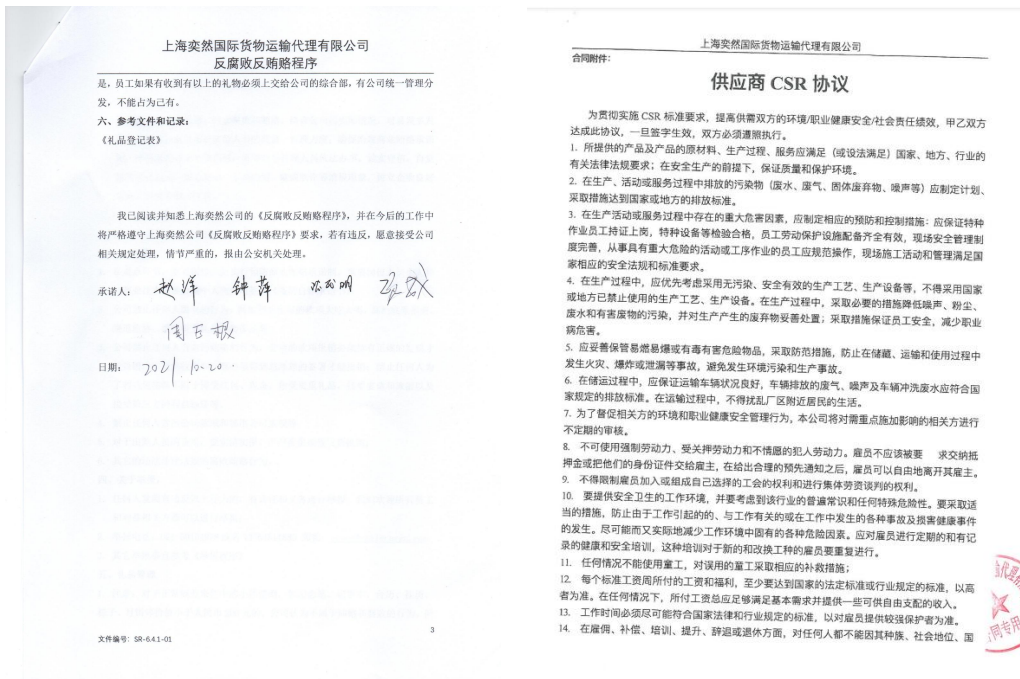 上海奕然国际货物运输代理有限公司
反腐败反贿赂程序
是，员工如果有收到有以上的礼物必须上交给公司的综合部，有公司统一管理分
发，不能占为己有。
六、参考文件和记录：
《礼品登记表》
我已阅读并知悉上海奕然公司的《反腐败反贿赂程序》，并在今后的工作中
将严格遵守上海奕然公司《反腐败反贿赂程序》要求，若有违反，愿意接受公司
相关规定处理，情节严重的，报由公安机关处理。
承诺人： 赵洋 钟萍
日期： 2021.10.20.
3
文件编号：SR-6.4.1-01
上海奕然国际货物运输代理有限公司
合同附件：
供应商 CSR 协议
为贯彻实施 CSR 标准要求，提高供需双方的环境/职业健康安全/社会责任绩效，甲乙双方
达成此协议，一旦签字生效，双方必须遵照执行。
1. 所提供的产品及产品的原材料、生产过程、服务应满足（或设法满足）国家、地方、行业的
有关法律法规要求；在安全生产的前提下，保证质量和保护环境。
2. 在生产、活动或服务过程中排放的污染物（废水、废气、固体废弃物、噪声等）应制定计划、
采取措施达到国家或地方的排放标准。
3. 在生产活动或服务过程中存在的重大危害因素，应制定相应的预防和控制措施：应保证特种
作业员工持证上岗，特种设备等检验合格，员工劳动保护设施配备齐全有效，现场安全管理制
度完善，从事具有重大危险的活动或工序作业的员工应规范操作，现场施工活动和管理满足国
家相应的安全法规和标准要求。
4. 在生产过程中，应优先考虑采用无污染、安全有效的生产工艺、生产设备等，不得采用国家
或地方已禁止使用的生产工艺、生产设备。在生产过程中，采取必要的措施降低噪声、粉尘、
废水和有害废物的污染，并对生产产生的废弃物妥善处置；采取措施保证员工安全，减少职业
病危害。
5. 应妥善保管易燃易爆或有毒有害危险物品，采取防范措施，防止在储藏、运输和使用过程中
发生火灾、爆炸或泄漏等事故，避免发生环境污染和生产事故。
6. 在储运过程中，应保证运输车辆状况良好，车辆排放的废气、噪声及车辆冲洗废水应符合国
家规定的排放标准。在运输过程中，不得扰乱厂区附近居民的生活。
7. 为了督促相关方的环境和职业健康安全管理行为，本公司将对需重点施加影响的相关方进行
不定期的审核。
8. 不可使用强制劳动力、受关押劳动力和不情愿的犯人劳动力。雇员不应该被要 求交纳抵
押金或把他们的身份证件交给雇主，在给出合理的预先通知之后，雇员可以自由地离开其雇主。
9. 不得限制雇员加入或组成自己选择的工会的权利和进行集体劳资谈判的权利。
10. 要提供安全卫生的工作环境，并要考虑到该行业的普遍常识和任何特殊危险性。要采取适
当的措施，防止由于工作引起的的、与工作有关的或在工作中发生的各种事故及损害健康事件
的发生。尽可能而又实际地减少工作环境中固有的各种危险因素。应对雇员进行定期的和有记
录的健康和安全培训，这种培训对于新的和改换工种的雇员要重复进行。
11. 任何情况不能使用童工，对误用的童工采取相应的补救措施；
12. 每个标准工资周所付的工资和福利，至少要达到国家的法定标准或行业规定的标准，以高
者为准。在任何情况下，所付工资总应足够满足基本需求并提供一些可供自由支配的收入。
13. 工作时间必须尽可能符合国家法律和行业规定的标准，以对雇员提供较强保护者为准。
14. 在雇佣、补偿、培训、提升、辞退或退休方面，对任何人都不能因其种族、社会地位、国